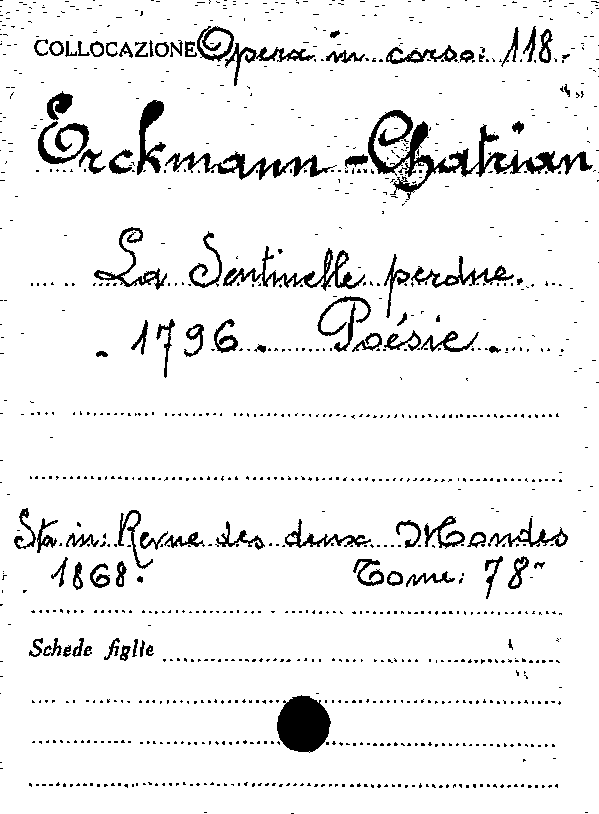 COLLOCAZIONE Opera in corso: 118.
Erckmann-Chatrian
La Sentinelle perdue.
- 1796. Poésie.
Sta in: Revue des deux Mondes
1868. Tome: 78º
Schede figlie